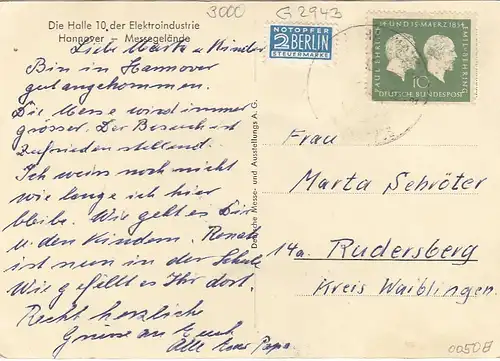 3000
G 2943
Die Halle 10, der Elektroindustrie
Hannover – Messegelände
Liebe Marta u Kinder
Bin in Hannover
gut angekommen.
Die Messe wird immer
grösser. Der Besuch ist
zufriedenstellend.
Ich weiss noch nicht
wie lange ich hier
bleibe. Wie geht es Dir
u. den Kindern. Renate
ist nun in der Schule
Wie gefällt es Ihr dort.
Recht herzliche
Grüsse an Euch
Alle Euer Papa.
Deutsche Messe- und Ausstellungs A. G.
NOTOPFER
2 BERLIN
STEUERMARKE
PAUL EHRLICH
14 UND 15 MAERZ 1854
EMIL V. BEHRING
10
DEUTSCHE BUNDESPOST
Frau
Marta Schröter
14a. Rudersberg
Kreis Waiblingen.
0050H